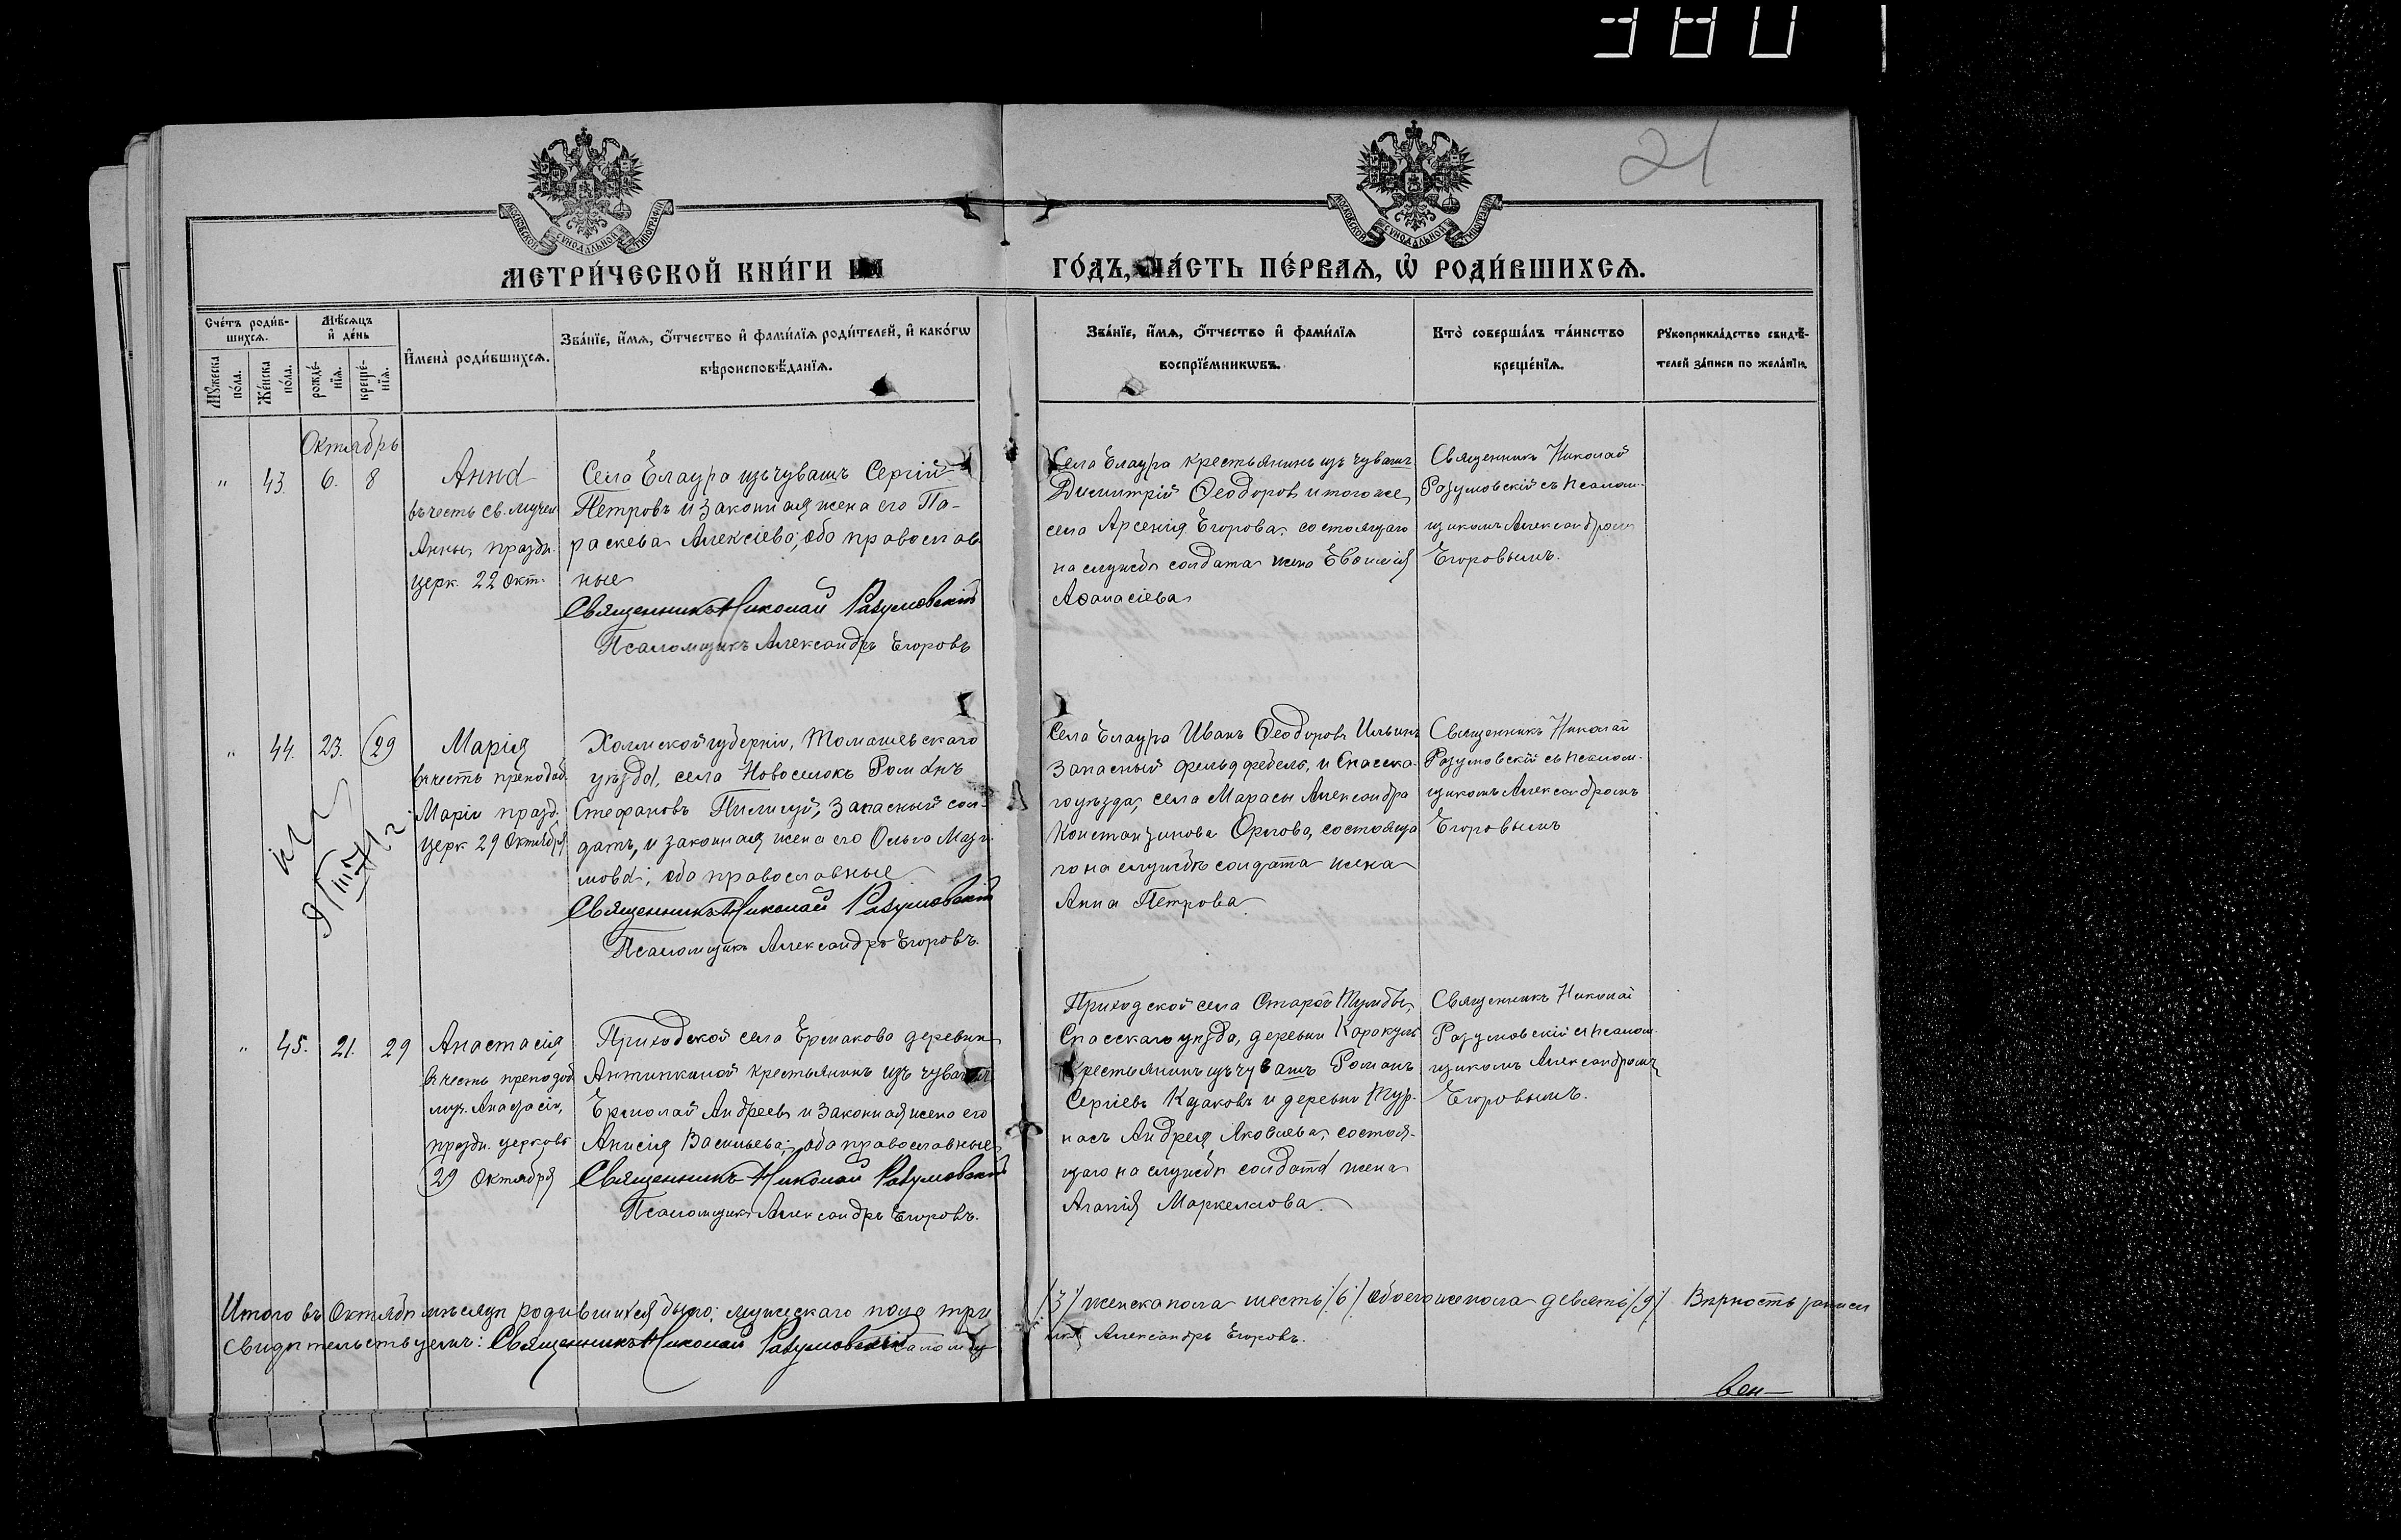 380
21
МОСКОВСКОЙ СѴНОДАЛЬНОЙ ТИПОГРАФІИ
МОСКОВСКОЙ СѴНОДАЛЬНОЙ ТИПОГРАФІИ
МЕТРИ́ЧЕСКОЙ КНИ́ГИ НА
ГО́ДЪ, ЧА́СТЬ ПЕ́РВАЯ, Ѡ РОДИ́ВШИХСЯ.
Сче́тъ роди́в-
шихся.
Му́жеска по́ла.
Же́нска по́ла.
Мѣ́сяцъ
и де́нь
рожде́-
нія.
креще́-
нія.
Имена̀ роди́вшихся.
Зва́ніе, и́мя, о́тчество и фами́лія роди́телей, и како́гѡ
вѣроисповѣ́данія.
Зва́ніе, и́мя, о́тчество и фами́лія
воспріе́мникѡвъ.
Кто̀ соверша́лъ та́инство
креще́нія.
Рукоприкла́дство свидѣ́-
телей за́писи по жела́нію.
Октябрь
" 43. 6. 8
Анна
въ честь св. мучен
Анны, праздн.
церк. 22 Окт.
Села Елаура изъ чувашъ Сергій
Петровъ и законная жена его Па-
раскева Алексіева; оба православ
ные
Священникъ Николай Разумовскій
Псаломщикъ Александръ Егоровъ
Села Елаура крестьянинъ изъ чувашъ
Димитрій Ѳеодоровъ и того же
села Арсенія Егорова, состоящаго
на службѣ солдата жена Евѳимія
Аѳанасіева
Священникъ Николай
Разумовскій съ псалом-
щикомъ Александромъ
Егоровымъ.
" 44. 23. 29
Марія
въ честь преподоб.
Маріи празд.
церк 29 Октября
Холмской губерніи, Томашевскаго
уѣзда, села Новоселокъ Романъ
Стефановъ Пилипуй, запасный сол-
датъ, и законная жена его Ольга Мази-
мова; оба православные
Священникъ Николай Разумовскій
Псаломщикъ Александръ Егоровъ.
Села Елаура Иванъ Ѳеодоровъ Ильинъ
запасный фельдфебель, и Спасска-
го уѣзда, села Марасы Александра
Константинова Орлова, состояща
го на службѣ солдата жена
Анна Петрова
Священникъ Николай
Разумовскій съ псалом-
щикомъ Александромъ
Егоровымъ
" 45. 21. 29
Анастасія
въ честь преподоб
муч. Анастасіи,
праздн. церковь
29 Октября
Приходской села Ермакова деревни
Антипкиной крестьянинъ изъ чувашъ
Ермолай Андреевъ и законная жена его
Анисія Васильева; оба православные
Священникъ Николай Разумовскій
Псаломщикъ Александръ Егоровъ.
Приходской села Старой Тумбы,
Спасскаго уѣзда, деревни Каракуль
крестьянинъ изъ чувашъ Романъ
Сергіевъ Казаковъ и деревни Тур-
насъ Андрея Яковлева, состоя-
щаго на службѣ солдата жена
Агапія Маркеллова.
Священникъ Николай
Разумовскій съ псалом-
щикомъ Александромъ
Егоровымъ.
Итого въ Октябрѣ мѣсяцѣ родившихся было: мужескаго пола три /3/ женска пола шесть /6/ обоего же пола девять /9/ Вѣрность записи
свидѣтельствуемъ: Священникъ Николай Разумовскій Псаломщикъ Александръ Егоровъ.